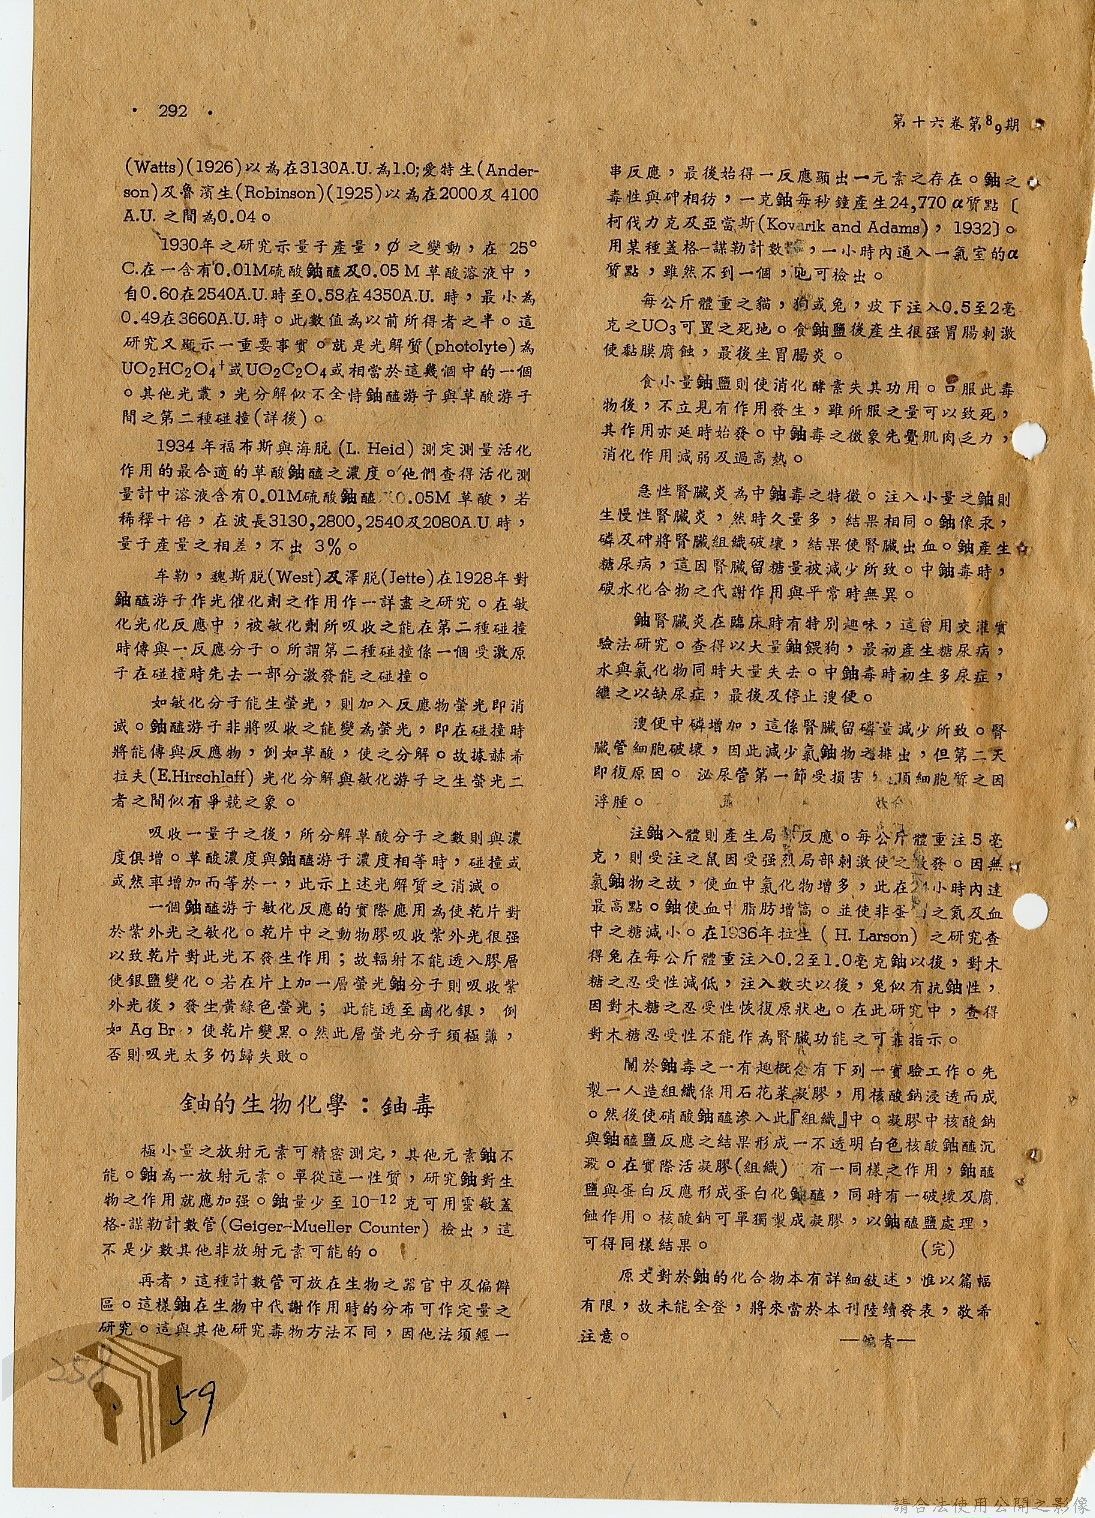 · 292 ·
第十六卷第8 9期
(Watts)(1926)以為在3130A.U.為1.0;愛特生(Ander-
son)及魯濱生(Robinson)(1925)以為在2000及4100
A.U. 之間為0.04。
1930年之研究示量子產量，∅之變動，在 25°
C.在一含有0.01M硫酸鈾醯及0.05 M 草酸溶液中，
自0.60在2540A.U.時至0.58在4350A.U. 時，最小為
0.49在3660A.U.時。此數值為以前所得者之半。這
研究又顯示一重要事實。就是光解質(photolyte)為
UO2HC2O4+或UO2C2O4或相當於這幾個中的一個
。其他光叢，光分解似不全恃鈾醯游子與草酸游子
間之第二種碰撞(詳後)。
1934年福布斯與海脫 (L. Heid) 測定測量活化
作用的最合適的草酸鈾醯之濃度。他們查得活化測
量計中溶液含有0.01M硫酸鈾醯及0.05M 草酸，若
稀釋十倍，在波長3130,2800,2540及2080A.U.時，
量子產量之相差，不出 3%。
牟勒，魏斯脫(West)及澤脫(Jette)在1928年對
鈾醯游子作光催化劑之作用作一詳盡之研究。在敏
化光化反應中，被敏化劑所吸收之能在第二種碰撞
時傳與一反應分子。所謂第二種碰撞係一個受激原
子在碰撞時先去一部分激發能之碰撞。
如敏化分子能生螢光，則加入反應物螢光即消
滅。鈾醯游子非將吸收之能變為螢光，即在碰撞時
將能傳與反應物，例如草酸，使之分解。故據赫希
拉夫(E.Hirschlaff) 光化分解與敏化游子之生螢光二
者之間似有爭競之象。
吸收一量子之後，所分解草酸分子之數則與濃
度俱增。草酸濃度與鈾醯游子濃度相等時，碰撞或
或然率增加而等於一，此示上述光解質之消滅。
一個鈾醯游子敏化反應的實際應用為使乾片對
於紫外光之敏化。乾片中之動物膠吸收紫外光很强
以致乾片對此光不發生作用；故輻射不能透入膠層
使銀鹽變化。若在片上加一層螢光鈾分子則吸收紫
外光後，發生黃綠色螢光； 此能透至鹵化銀， 例
如 Ag Br，使乾片變黑。然此層螢光分子須極薄，
否則吸光太多仍歸失敗。
鈾的生物化學：鈾毒
極小量之放射元素可精密測定，其他元素鈾不
能。鈾為一放射元素。單從這一性質，研究鈾對生
物之作用就應加强。鈾量少至 10-12 克可用靈敏蓋
格-謀勒計數管(Geiger-Mueller Counter) 檢出，這
不是少數其他非放射元素可能的。
再者，這種計數管可放在生物之器官中及偏僻
區。這樣鈾在生物中代謝作用時的分布可作定量之
研究。這與其他研究毒物方法不同，因他法須經一
串反應，最後始得一反應顯出一元素之存在。鈾之
毒性與砷相彷，一克鈾每秒鐘產生24,770 α質點〔
柯伐力克及亞當斯(Kovarik and Adams)，1932〕。
用某種蓋格-謀勒計數，一小時內通入一氣室的α
質點，雖然不到一個，也可檢出。
每公斤體重之貓，狗或兔，皮下注入0.5至2毫
克之UO3可置之死地。食鈾鹽後產生很强胃腸刺激
使黏膜腐蝕，最後生胃腸炎。
食小量鈾鹽則使消化酵素失其功用。口服此毒
物後，不立見有作用發生，雖所服之量可以致死，
其作用亦延時始發。中鈾毒之徵象先覺肌肉乏力，
消化作用減弱及過高熱。
急性腎臟炎為中鈾毒之特徵。注入小量之鈾則
生慢性腎臟炎，然時久量多，結果相同。鈾像汞，
磷及砷將腎臟組織破壞，結果使腎臟出血。鈾產生
糖尿病，這因腎臟留糖量被減少所致。中鈾毒時，
碳水化合物之代謝作用與平常時無異。
鈾腎臟炎在臨床時有特別趣味，這曾用來灌實
驗法研究。查得以大量鈾餵狗，最初產生糖尿病，
水與氯化物同時大量失去。中鈾毒時初生多尿症，
繼之以缺尿症，最後及停止溲便。
溲便中磷增加，這係腎臟留磷量減少所致。腎
臟管細胞破壞，因此減少氯鈾物之排出，但第二天
即復原因。 泌尿管第一節受損害，頂細胞質之因
浮腫。
注鈾入體則產生局部反應。每公斤體重注5毫
克，則受注之鼠因受强烈局部刺激使之發。因無
氯鈾物之故，使血中氯化物增多，此在24小時內達
最高點。鈾使血中脂肪增高。並使非蛋白之氮及血
中之糖減小。在1936年拉生 ( H. Larson) 之研究查
得兔在每公斤體重注入0.2至1.0毫克鈾以後，對木
糖之忍受性減低，注入數次以後，兔似有抗鈾性，
因對木糖之忍受性恢復原狀也。在此研究中，查得
對木糖忍受性不能作為腎臟功能之可靠指示。
關於鈾毒之一有趣概念有下列一實驗工作。先
製一人造組織係用石花菜凝膠，用核酸鈉浸透而成
。然後使硝酸鈾醯滲入此『組織』中。凝膠中核酸鈉
與鈾醯鹽反應之結果形成一不透明白色核酸鈾醯沉
澱。在實際活凝膠(組織) 有一同樣之作用，鈾醯
鹽與蛋白反應形成蛋白化鈾醯，同時有一破壞及腐
蝕作用。核酸鈉可單獨製成凝膠，以鈾醯鹽處理，
可得同樣結果。 (完)
原文對於鈾的化合物本有詳細敘述，惟以篇幅
有限，故未能全登，將來當於本刊陸續發表，敬希
注意。 —編者—
258
59
請合法使用公開之影像